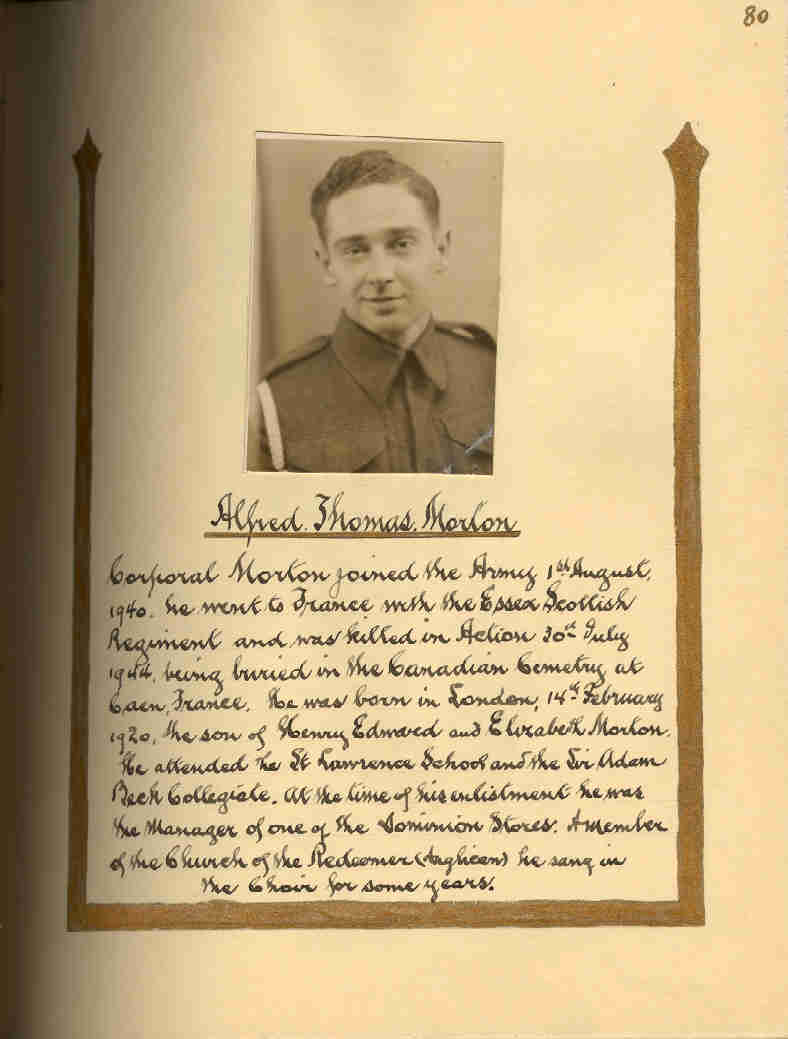 80
Alfred. Thomas. Morton
Corporal Morton joined the Army 1st August,
1940. he went to France with the Essex Scottish
Regiment and was killed in Action 30th July
1944, being buried in the Canadian Cemetry at
Caen, France. He was born in London, 14th February
1920, the son of Henry Edward and Elizabeth Morton.
He attended he St Lawrence School and the Sir Adam
Beck Collegiate. At the time of his enlistment he was
the Manager of one of the Dominion Stores. A member
of the Church of the Redeemer (Anglican) he sang in
the Choir for some years.